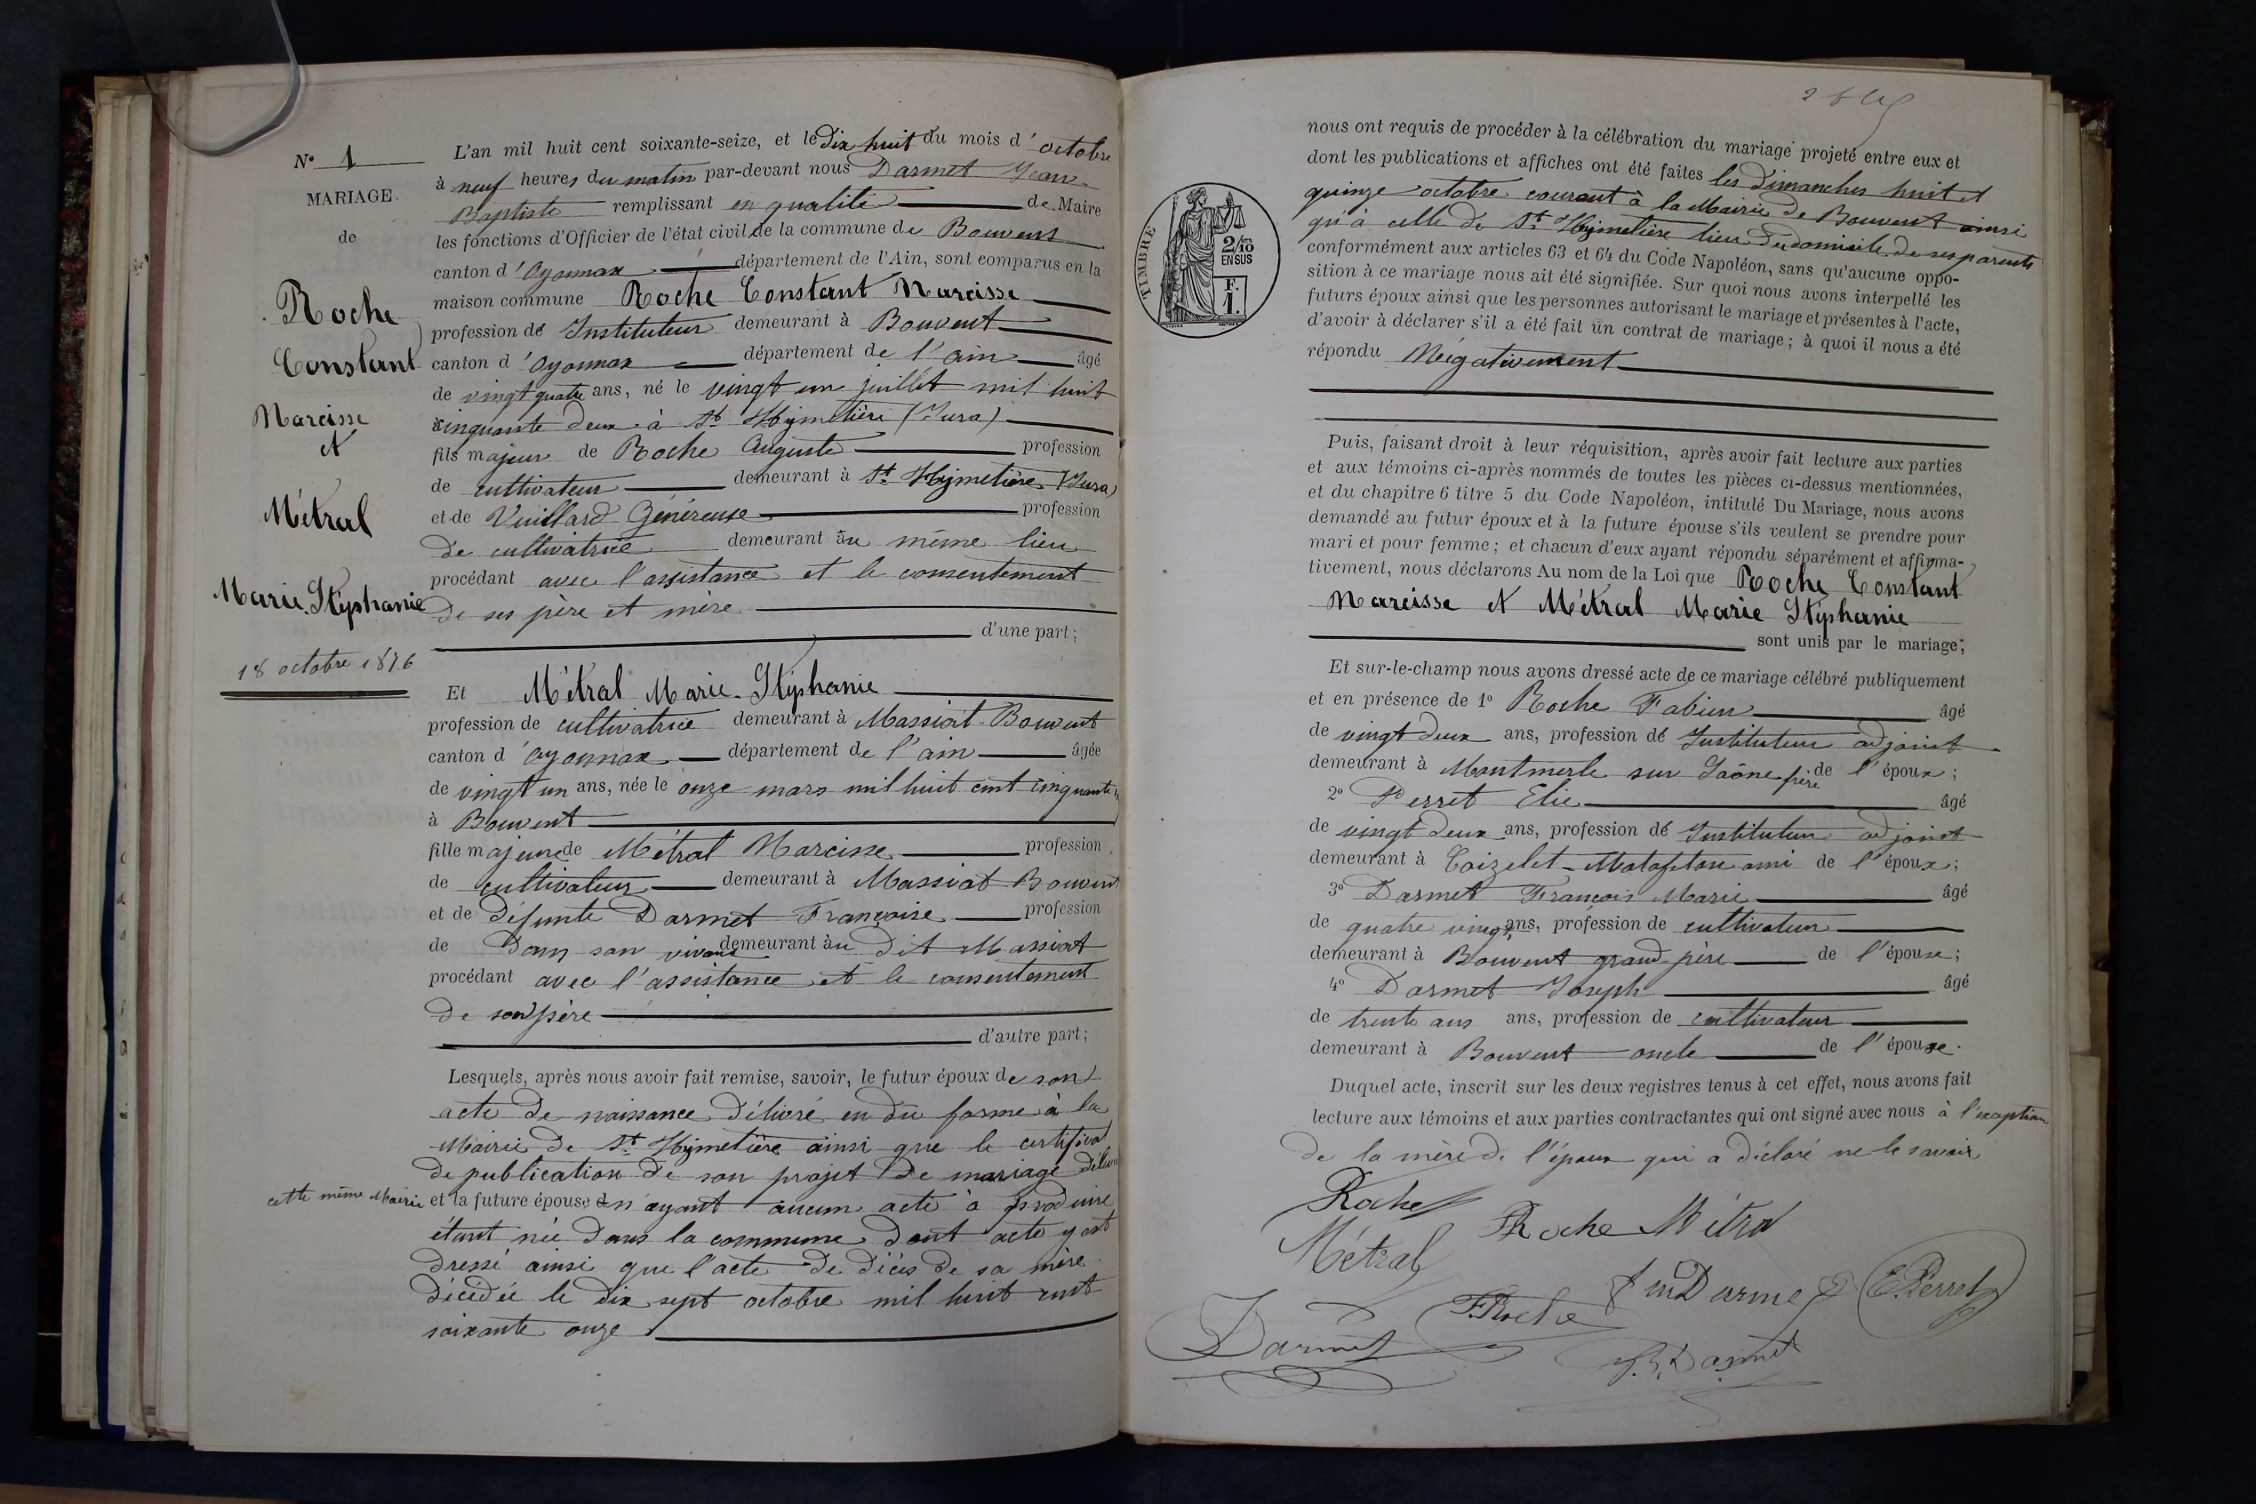 N° 1
MARIAGE
de
Roche
Constant
Narcisse
et
Métral
Marie Stéphanie
18 octobre 1876
L'an mil huit cent soixante-seize, et le dix huit du mois d'octobre
à neuf heures du matin par-devant nous Darmet Jean
Baptiste remplissant en qualité de Maire
les fonctions d'Officier de l'état civil de la commune de Bouvent
canton d'Oyonnax département de l'Ain, sont comparus en la
maison commune Roche Constant Narcisse
profession de Instituteur demeurant à Bouvent
canton d'Oyonnax département de l'ain âgé
de vingt quatre ans, né le vingt un juillet mil huit
cinquante deux à St Hymetière (Jura)
fils majeur de Roche Auguste profession
de cultivateur demeurant à St Hymetière (Jura)
et de Vuillard Généreuse profession
de cultivatrice demeurant au même lieu
procédant avec l'assistance et le consentement
de ses père et mère
d'une part;
Et Métral Marie Stéphanie
profession de cultivatrice demeurant à Massiat-Bouvent
canton d'oyonnax département de l'ain âgée
de vingt un ans, née le onze mars mil huit cent cinquante
à Bouvent
fille majeure de Métral Narcisse profession
de cultivateur demeurant à Massiat Bouvent
et de défunte Darmet Françoise profession
de Dans son vivant demeurant au dit Massiat
procédant avec l'assistance et le consentement
de son père
d'autre part;
Lesquels, après nous avoir fait remise, savoir, le futur époux de son
acte de naissance délivré en du forme à la
Mairie de St Hymetière ainsi que le certificat
de publication de son projet de mariage
cette même Mairie
et la future épouse n'ayant aucun acte à produire
étant née dans la commune dont acte y est
dressé ainsi que l'acte de décès de sa mère
décédée le dix sept octobre mil huit cent
soixante onze
TIMBRE
2/10
EN SUS
F.
1.
nous ont requis de procéder à la célébration du mariage projeté entre eux et
dont les publications et affiches ont été faites les dimanches huit et
quinze octobre courant à la Mairie de Bouvent ainsi
qu'à celle de St Hymetière lieu du domicile de ses parents
conformément aux articles 63 et 64 du Code Napoléon, sans qu'aucune oppo-
sition à ce mariage nous ait été signifiée. Sur quoi nous avons interpellé les
futurs époux ainsi que les personnes autorisant le mariage et présentes à l'acte,
d'avoir à déclarer s'il a été fait un contrat de mariage; à quoi il nous a été
répondu Négativement
Puis, faisant droit à leur réquisition, après avoir fait lecture aux parties
et aux témoins ci-après nommés de toutes les pièces ci-dessus mentionnées,
et du chapitre 6 titre 5 du Code Napoléon, intitulé Du Mariage, nous avons
demandé au futur époux et à la future épouse s'ils veulent se prendre pour
mari et pour femme; et chacun d'eux ayant répondu séparément et affirma-
tivement, nous déclarons Au nom de la Loi que Roche Constant
Narcisse et Métral Marie Stéphanie
sont unis par le mariage;
Et sur-le-champ nous avons dressé acte de ce mariage célébré publiquement
et en présence de 1° Roche Fabien âgé
de vingt deux ans, profession de Instituteur adjoint
demeurant à Montmerle sur Saône frère de l'époux;
2° Perret Elie âgé
de vingt deux ans, profession de Instituteur adjoint
demeurant à Coizelet-Matafelon ami de l'époux;
3° Darmet François Marie âgé
de quatre vingts ans, profession de cultivateur
demeurant à Bouvent grand père de l'épouse;
4° Darmet Joseph âgé
de trente ans ans, profession de cultivateur
demeurant à Bouvent oncle de l'épouse.
Duquel acte, inscrit sur les deux registres tenus à cet effet, nous avons fait
lecture aux témoins et aux parties contractantes qui ont signé avec nous à l'exception
de la mère de l'époux qui a déclaré ne le savoir
Roche
Roche Métral
Métral
Darmet
E. Perret
F. Roche
Darmet
Darmet